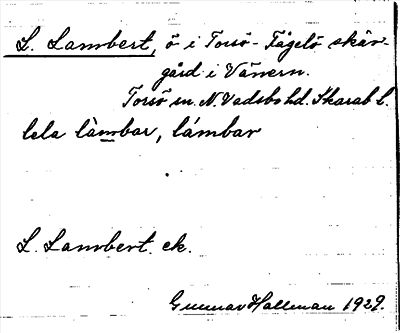 L. Lambert, ö i Torsö - Fågelö skär-
gård i Vänern.
Torsö sn. N. Vadsbo hd. Skarab. l.
lela làmbar, lámbar
L. Lambert. ek.
Gunnar Hallman 1929.